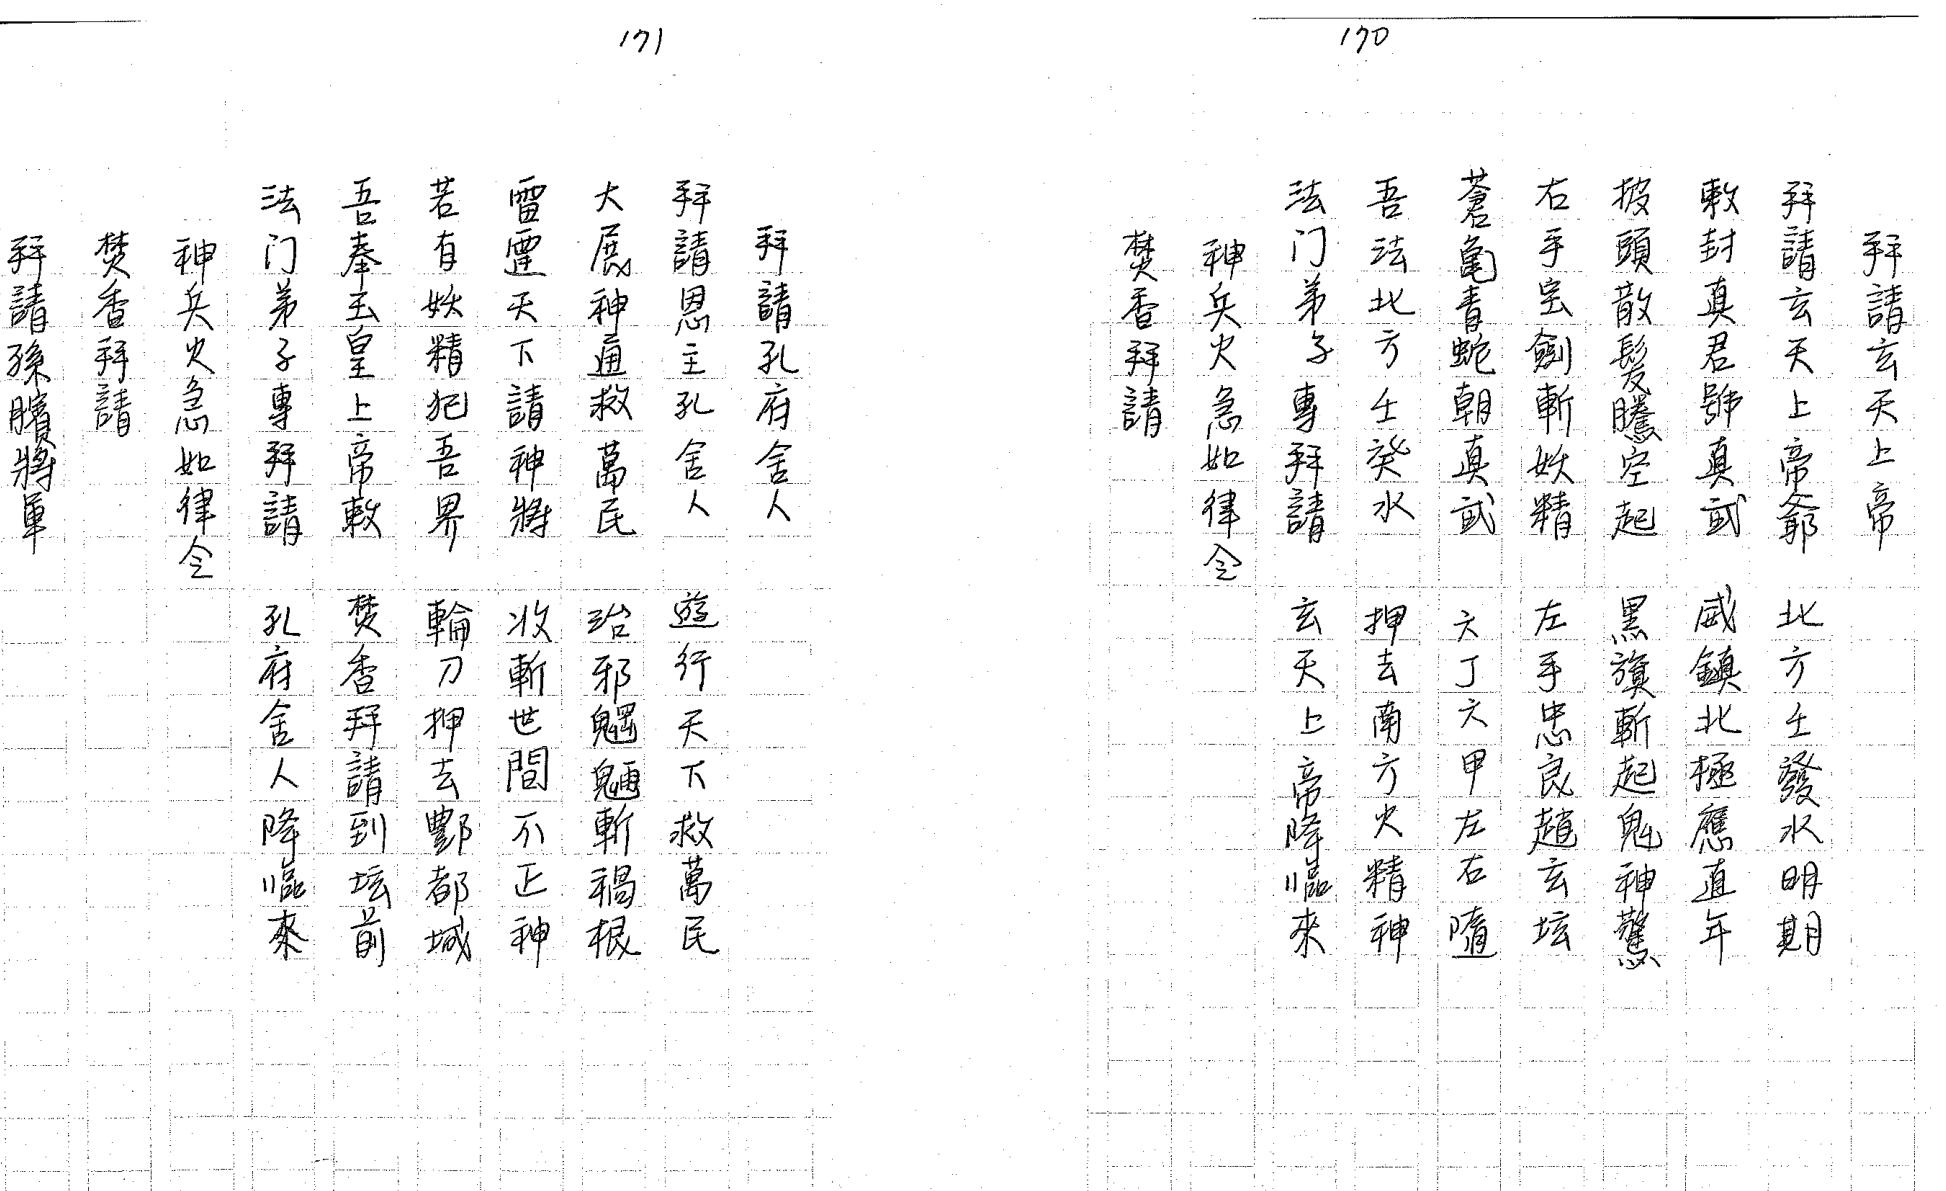 170
拜請玄天上帝
拜請玄天上帝爺 北方壬發水明期
敕封真君號真武 威鎮北極應直年
披頭散髮騰空起 黑旗斬起鬼神驚
右手宝劍斬妖精 左手忠良趙玄坛
蒼龟青蛇朝真武 六丁六甲左右隨
吾法北方壬癸水 押去南方火精神
法门弟子專拜請 玄天上帝降臨來
神兵火急如律令
焚香拜請
171
拜請孔府舍人
拜請恩主孔舍人 遊行天下救萬民
大展神通救萬民 治邪魍魎斬禍根
雷霆天下請神將 收斬世間不正神
若有妖精犯吾界 輪刀押去酆都城
吾奉玉皇上帝敕 焚香拜請到坛前
法门弟子專拜請 孔府舍人降臨來
神兵火急如律令
焚香拜請
拜請孫臏將軍